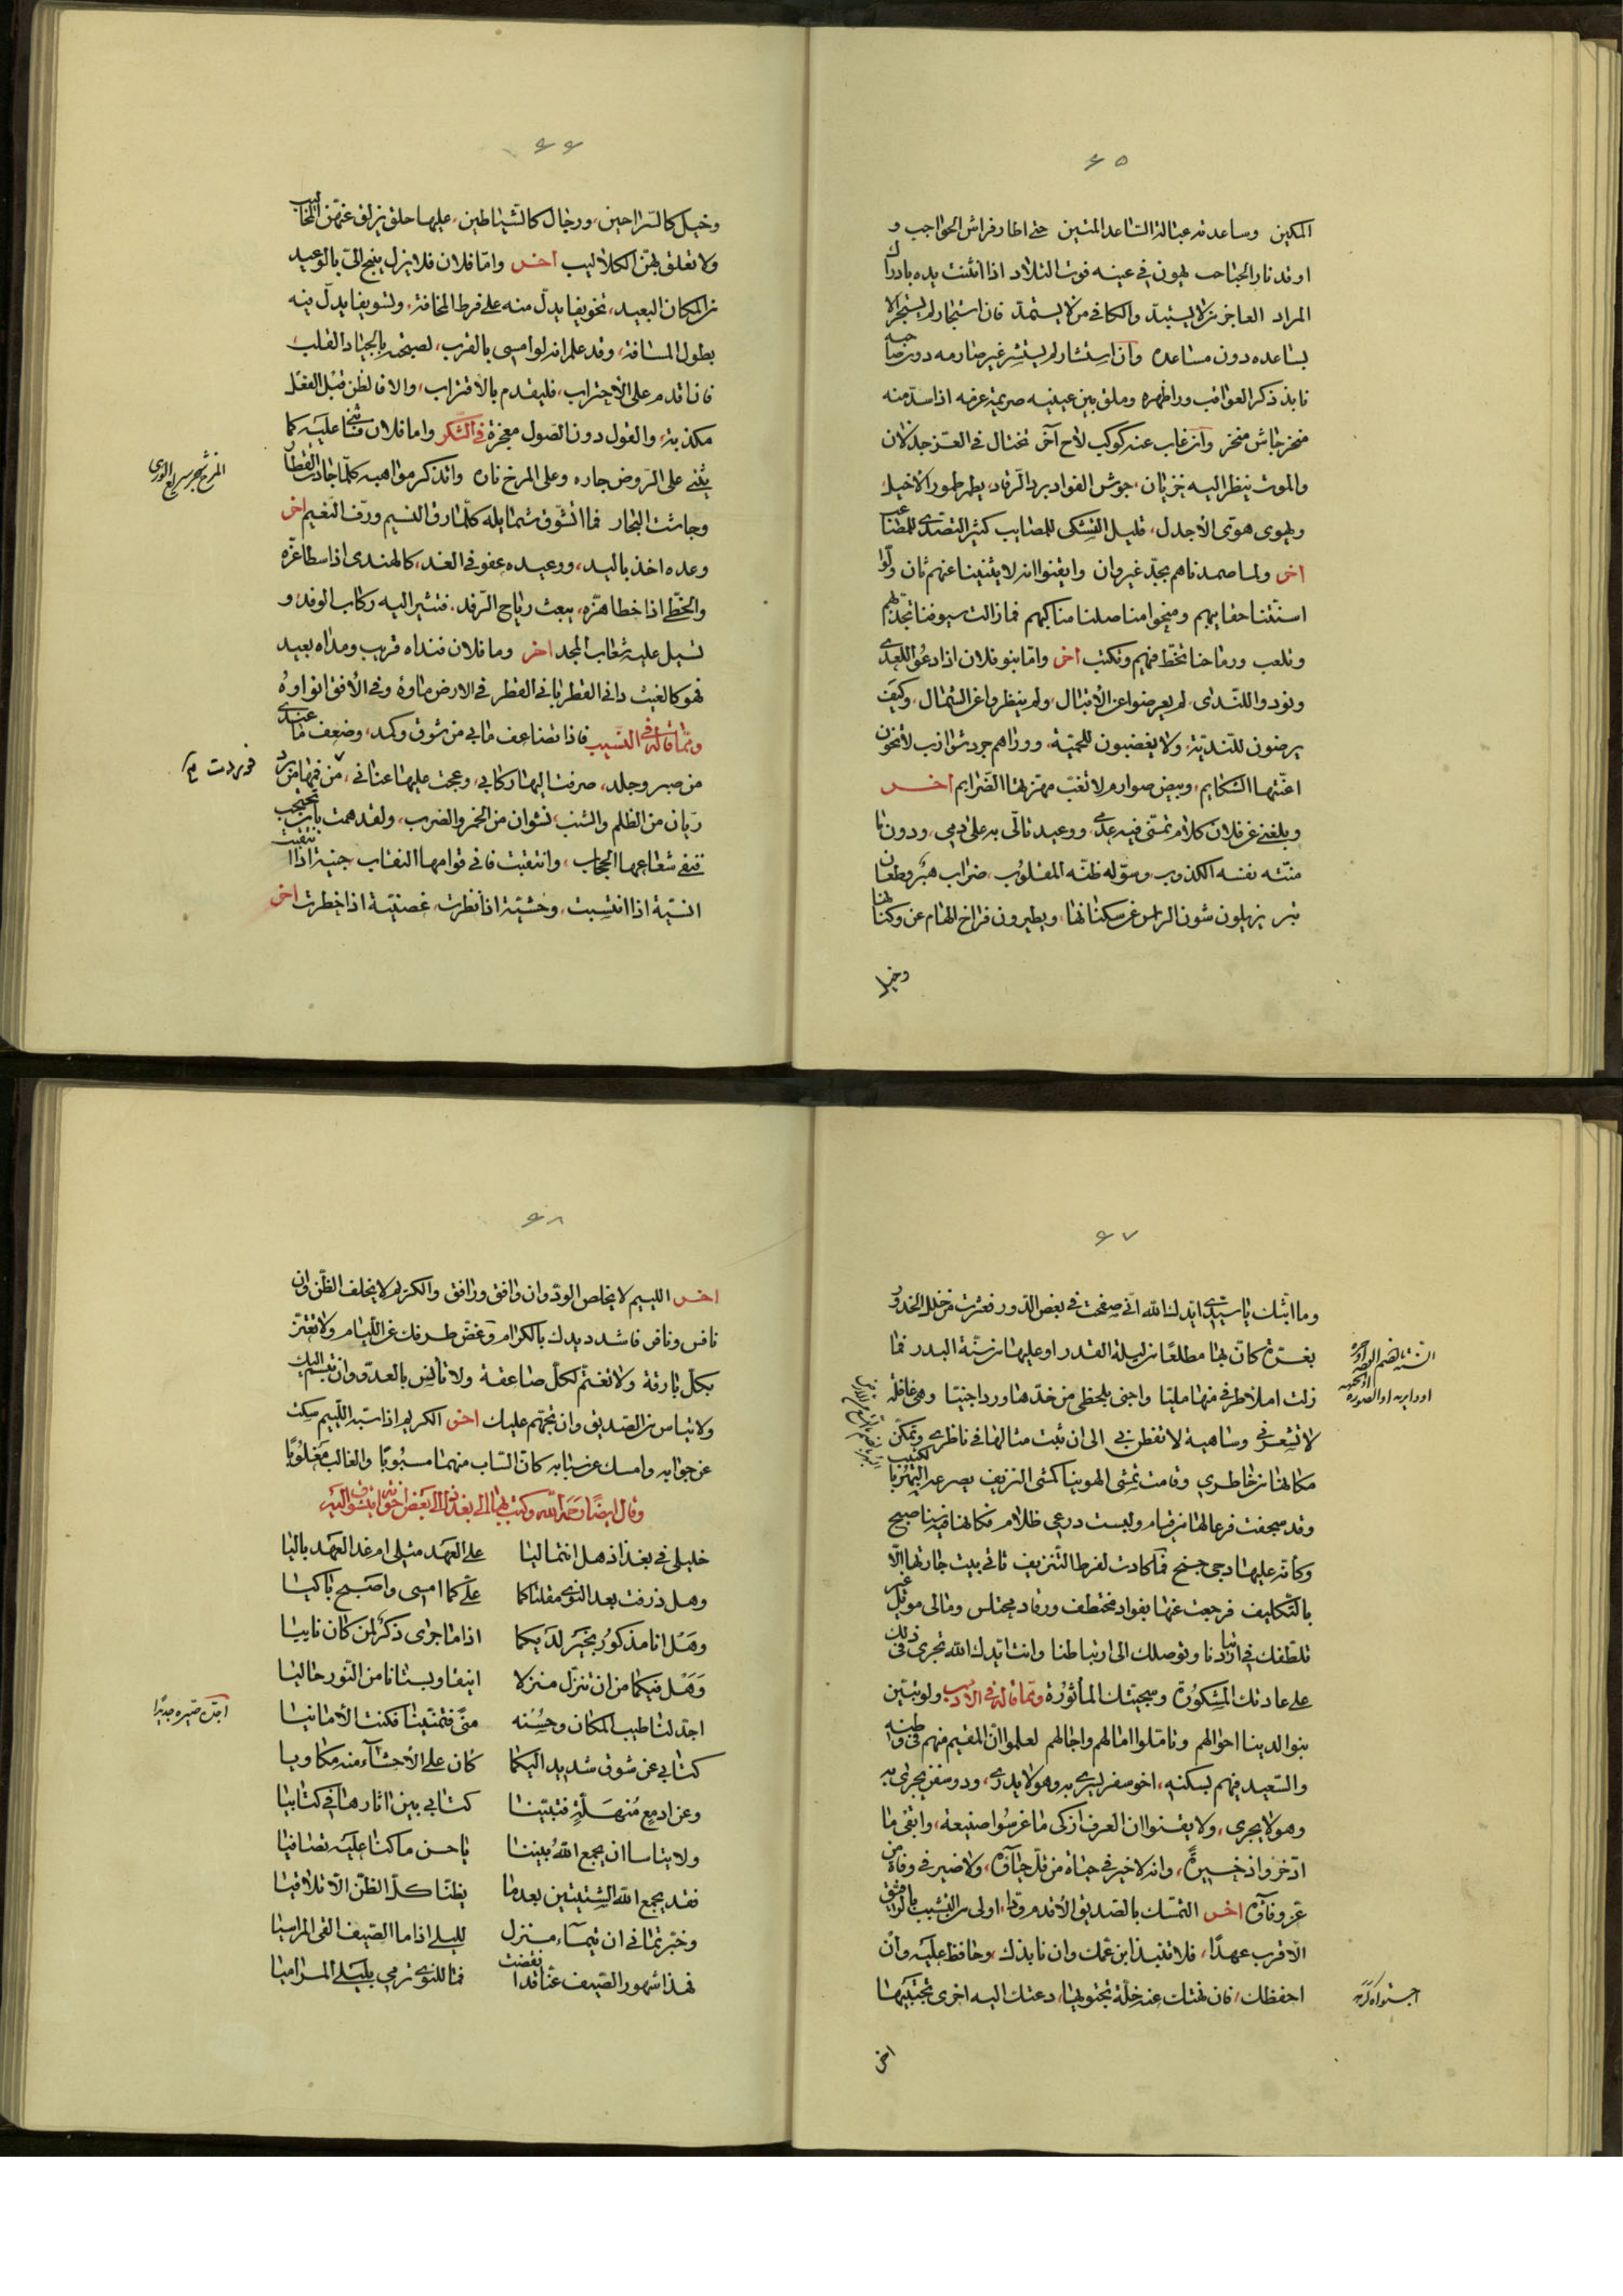 ٤٥
المكين وساعدته عبالة الساعد المتين حتى اطار فراش الحواجب و
اوقد نار الحباحب يهون في عينه فوت التلاد اذا انثنت يده بادراك
المراد العاجز من لا يستبد والكافي من لا يستمد فان استجار لم يستجر الا
بساعده دون مساعده وان استشار لم يستشر غير صارمه دون صاحبه
نابذ ذكر العواقب وراظهره وملق بين عينيه صريمة عزمه اذا سد منه
منخر جاش منخر وان غاب عنه كوكب لاح آخر نختال في العز جدلان
والموت ينظر اليه خزيان، حوش الفواد برد الرقاد، يطير طمور الاخيل
ويهوى هوى الاجدل، قليل التشكى للمصايب كثير التصدى للمصاعب
اخر ولما صمدناهم بجد غير وان وايقنوا انه لا يثنينا عنهم ثان ولوا
اسنتنا حقايبهم ومنحوا مناصلنا مناكبهم فما زالت سيوفنا تجد بهم
وتلعب ورماحنا تخط فيهم وتكتب اخر واما بنو فلان اذا دعوا للعدى
ونودوا للندى، لم يعرضوا عن الاقبال، ولم ينظروا عن الشمال، وكيف
يرضون للندية، ولا يغضبون للحمية، ووراهم جرد شوازب لا تخون
اعنتها الشكايم، وبيض صوارم لا تغب مهزتها الضرايم اخر
وبلغني عن فلان كلام تمشى فيه على، ووعيد تالى به على دمي، ودون ما
منته نفسه الكذوب، وسوله ظنه المغلوب، ضراب هبر وطعان
نتر يزيلون شون الراس عن سكناتها، ويطيرون فراخ الهام عن وكناتها
وخيل
٤٦
وخيل كالسراحين، ورجال كالشياطين، عليها حلق يزلق عنهن المخاليب
ولا تعلق بهن الكلاليب اخر واما فلان فلا يزل ينبح الى بالوعيد
من المكان البعيد، تخويفا يدل منه على فرط المخافة، وتشويفا يدل فيه
بطول المسافة، وقد علم انه لو امسى بالقرب، لصبحته بالجياد القلب
فان اقدم على الاحتراب، فليقدم بالاقتراب، والا فالظن قبل الفعل
مكذبة، والقول دون الصول معجزة في الشكر واما فلان فثنى عليه كما
يثنى على الروض جاره وعلى المرخ ناره واتذكر مواهبه كلما جادت القطار
وجاشت البحار فما اتشوق شمايله كلما رق النسيم ورف النعيم اخر
وعده اخذ باليد، ووعيده عفو في الغد، كالهندى اذا سطا عزه
والخطى اذا خطا هزه، يبعث رياح الرفد، فتثير اليه ركاب الوفد، و
تسيل عليه شعاب المجد اخر وما فلان فنداه قريب ومداه بعيد
فهو كالغيث داني القطر نائي القطر في الارض ماوه وفي الافق انواوه
ومما قاله في النسيب فاذا تضاعف مابي من شوق وكمد، وضعف ما عندى
من صبر وجلد، صرفت اليها ركابي، وعجت عليها عناني، من فمها من برد
ريان من الظلم والشنب نشوان من الخمر والضرب، ولقد همت بان تحتجب
فنفى شعاعها الحجاب، وانتقبت فاني قوامها النقاب جنية اذا انتقبت
انسية اذا انتسبت، وحشية اذا نظرت، غصنية اذا خطرت اخر
المرخ شجر سريع الورى
٤٧
وما ابثك يا سيدى ايدك الله انى صفحت في بعض الدور فعثرت من خلل الخدور
بغرة كان بها مطلعا من ليلة القدر او عليها من سنة البدر فما
زلت املا طرفي منها مليا واجنى بلحظى من خدها وردا جنيا وهى غافلة
لا تشعر بي وساهية لا تفطن بي الى ان ثبت مثالها في ناظرى وتمكن
مكانها من خاطرى وقامت تمشى الهوينا كمشى النزيف يصرعه بالكثيب البهر
وقد سجفت فرعا لها من قيام ولبست درعى ظلام فكانها فيه سنا صبح
وكانه عليها دجى جنح فما كادت لفرط التنزيف تاتى بيت جارتها الا
بالتكليف فرجعت عنها بفواد مختطف ورقاد مختلس ومالى موئل غير
تلطفك في ازديادنا وتوصلك الى ارتباطنا وانت ايدك الله تجرى في ذلك
على عادتك المشكورة وسجيتك الماثورة ومما قاله في الادب ولو تبين
بنو الدينا احوالهم وتاملوا امالهم واجالهم لعلموا ان المقيم منهم في وطنه
والسعيد فيهم بسكنه، اخو سفر يسرى به وهو لا يدرى، وذو سفن يجرى به
وهو لا يجرى، ولا يقنوا ان العرف ازكى ما غرسوا صنيعه، وابقى ما
ادخروا ذخيرة، وانه لا خير في حياة من قل حياؤه، ولا ضير في وفاة من
عز وفاؤه اخر التمسك بالصديق الاقدم ودا، اولى من النسيب بالواثق
الاقرب عهدا، فلا تنبذ ابن عمك وان نابذك، وحافظ عليه وان
احفظك، فان نهتك عنه خلة تجتويها، دعتك اليه اخرى تجتبيها
اجتواه كرهه
اخر
٤٨
اخر اللييم لا يخلص الود وان وافق ورافق والكريم لا يخلف الظن وان
نافس ونافر فاشدد يدك بالكرام وغض طرفك عن اللئام ولا تغتر
بكل بارقة ولا تغتم لكل صاعقة ولا تانس بالعدو وان تبسم اليك
ولا تياس من الصديق وان تجهم عليك اخر الكريم اذا سبه اللييم سكت
عن جوابه وامسك عن سبابه كان الساب منهما مسبوبا والغالب مغلوبا
وقال ايضا رحمه الله وكتب بها الى بغداد الى بعض اخوانه يتشوق اليه
خليلى في بغداذ هل انتما ليا على العهد مثلى ام غدا العهد باليا
وهل ذرفت بعد النوى مقلتاكما على كما امسى واصبح باكيا
وهل انا مذكور بخير لديكما اذا ما جرى ذكر لمن كان نائيا
وهل فيكما من ان تنزل منزلا انيقا وبستانا من النور حاليا
اجد لنا طيب المكان وحسنه منى فتمنينا فكنت الامانيا
كتابي عن شوق شديد اليكما كان على الاحشاء منه مكاويا
وعن ادمع منهلة فتبينا كتابي بين اثارها في كتابيا
ولا يتاسا ان يجمع الله بيننا باحسن ما كنا عليه تصافيا
فقد يجمع الله الشتيتين بعدما يظنا كل الظن الا تلاقيا
وخبرتماني ان تيماء منزل لليلى اذا ما الصيف القى المراسيا
فهذا شهور الصيف عنا قد انقضت فما للنوى ترمى بليلى المراميا
اجد صيره جديدا